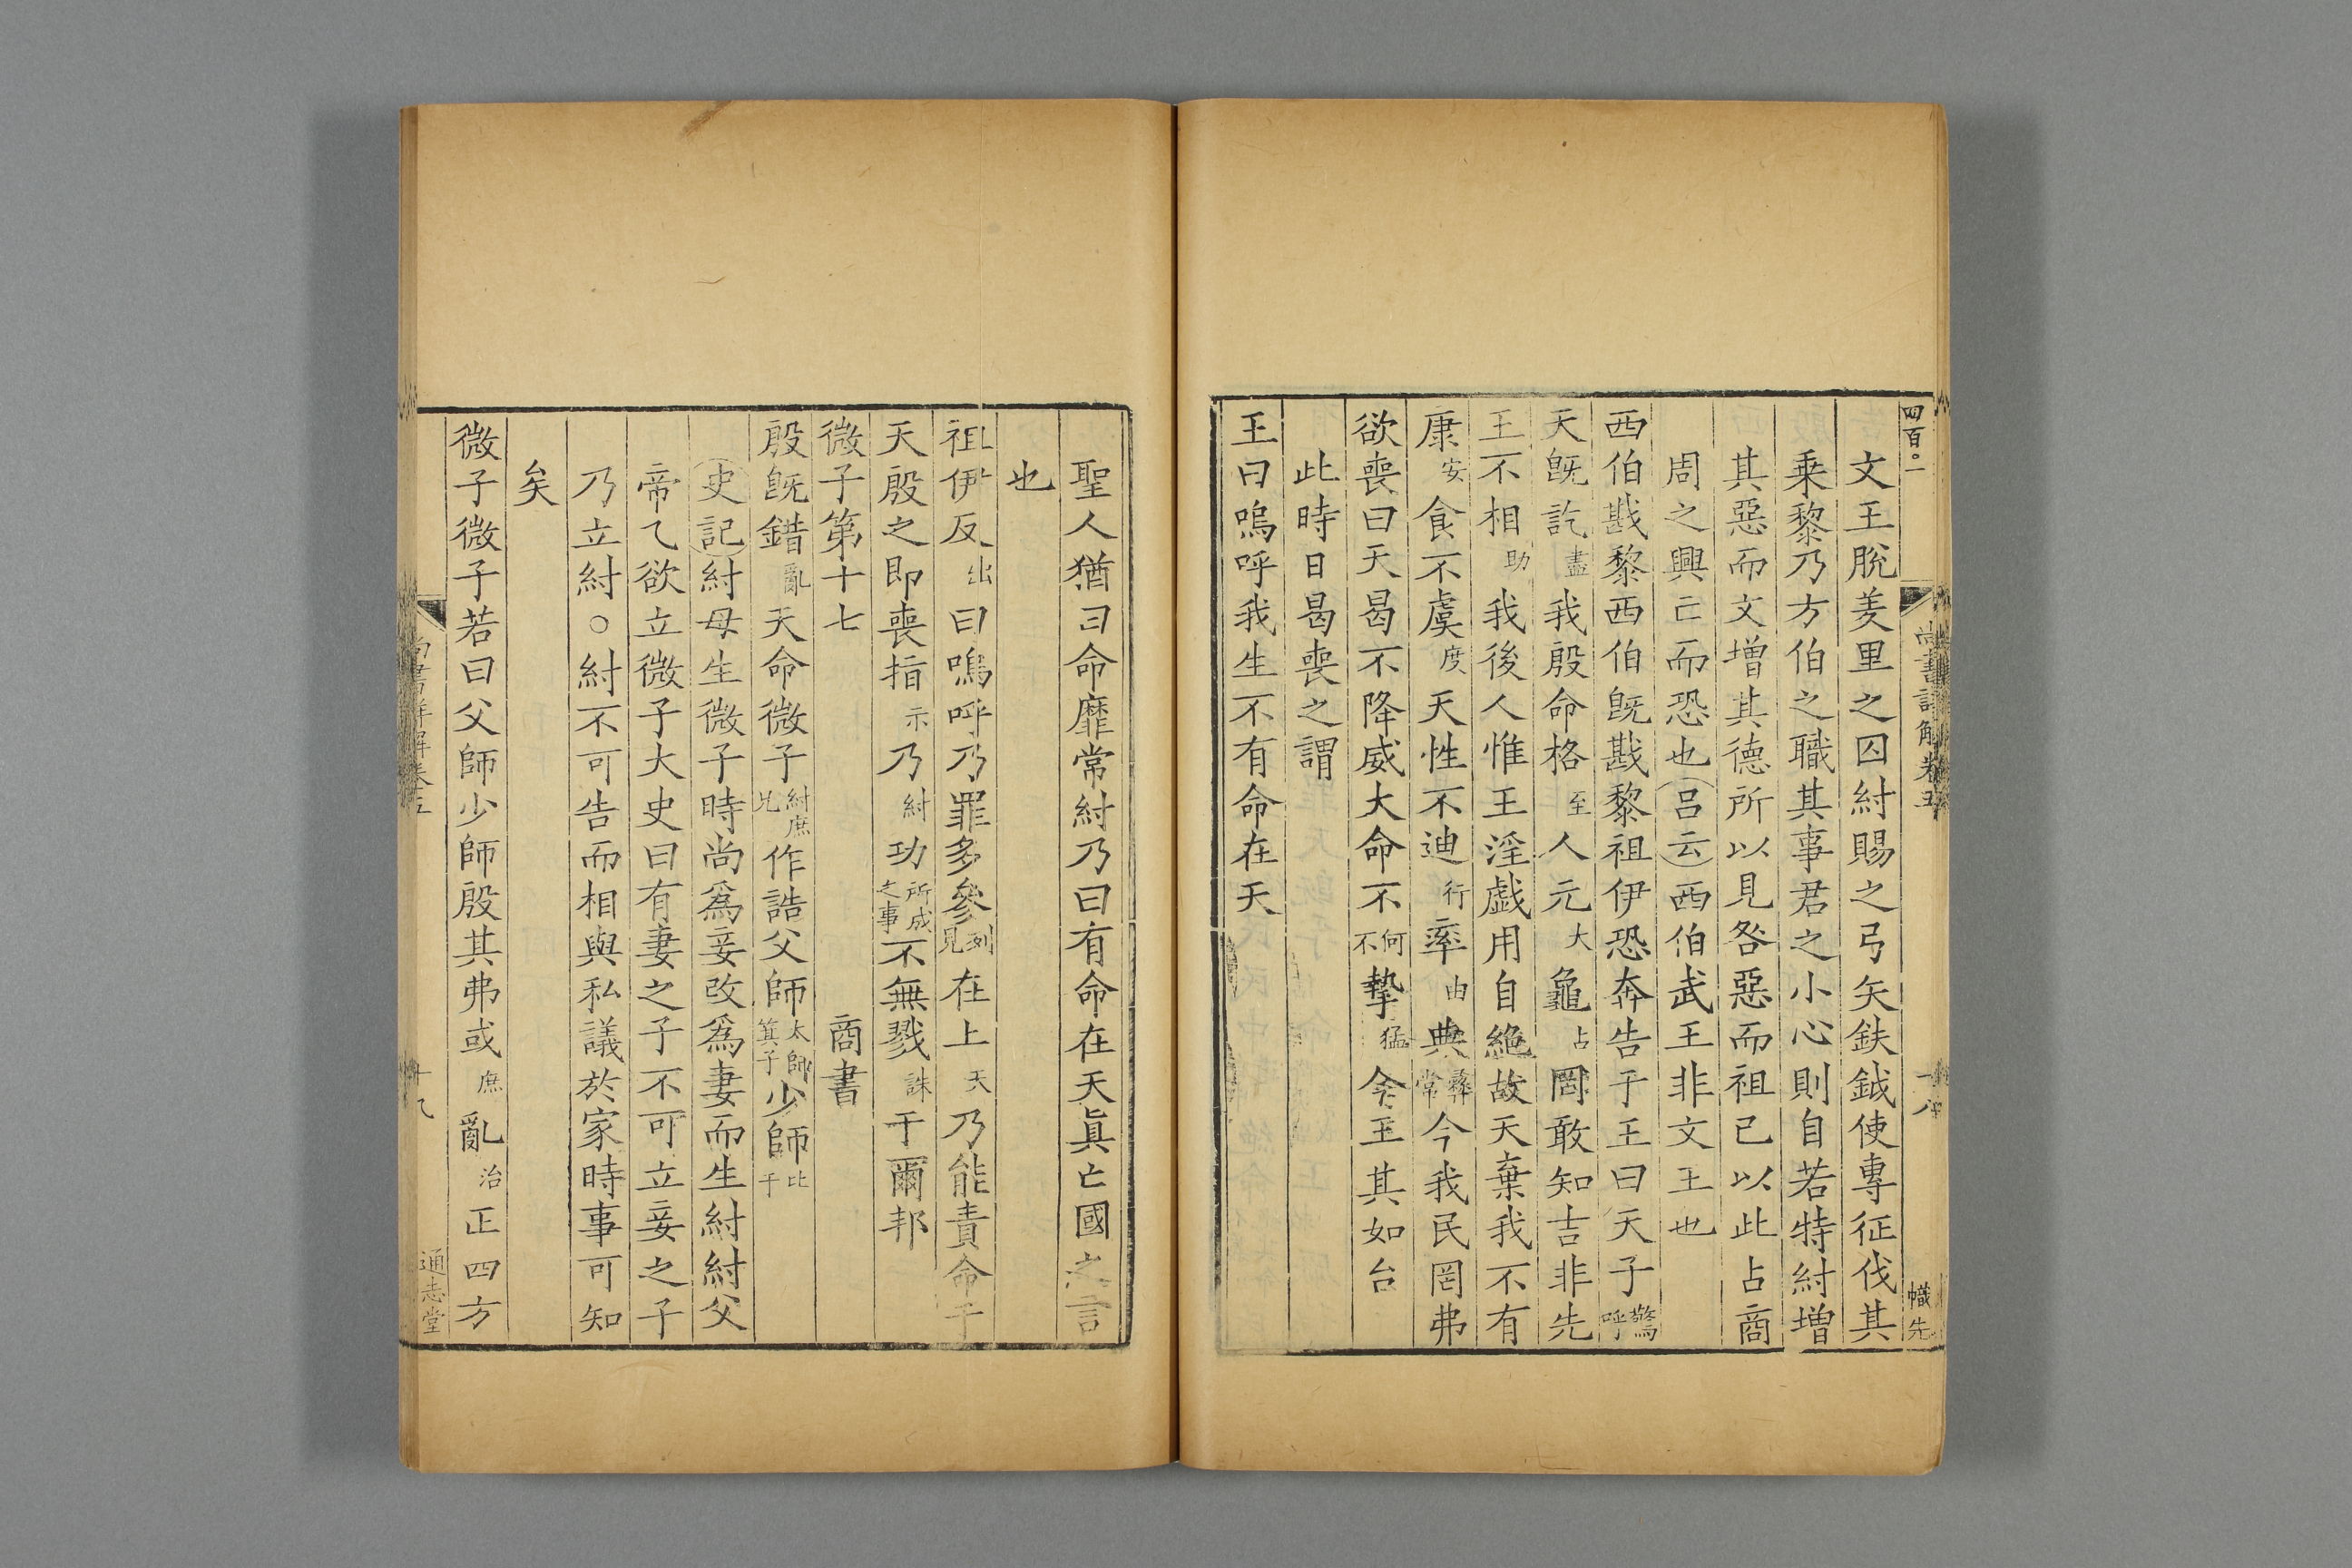 四百〇一
尚書詳解卷五
十八
幟先
文王脫羑里之囚紂賜之弓矢鈇鉞使專征伐其
乗黎乃方伯之職其事君之小心則自若特紂增
其惡而文增其德所以見咎惡而祖已以此占商
周之興亡而恐也吕云西伯武王非文王也
西伯戡黎西伯旣戡黎祖伊恐奔告于王曰天子驚呼
天旣訖盡我殷命格至人元大龜占罔敢知吉非先
王不相助我後人惟王淫戲用自絶故天棄我不有
康安食不虞度天性不迪行率由典彝常今我民罔弗
欲喪曰天曷不降威大命不何不摯猛今王其如台
此時日曷喪之謂
王曰嗚呼我生不有命在天
聖人猶曰命靡常紂乃曰有命在天眞亡國之言
也
祖伊反出曰嗚呼乃罪多參列見在上天乃能責命于
天殷之即喪指示乃紂功所成之事不無戮誅于爾邦
微子第十七 商書
殷旣錯亂天命微子紂庶兄作誥父師太師箕子少師比干
史記紂母生微子時尚爲妾改爲妻而生紂紂父
帝乙欲立微子大史曰有妻之子不可立妾之子
乃立紂○紂不可告而相與私議於家時事可知
矣
微子微子若曰父師少師殷其弗或庶亂治正四方
尚書詳解卷五
十八
通志堂